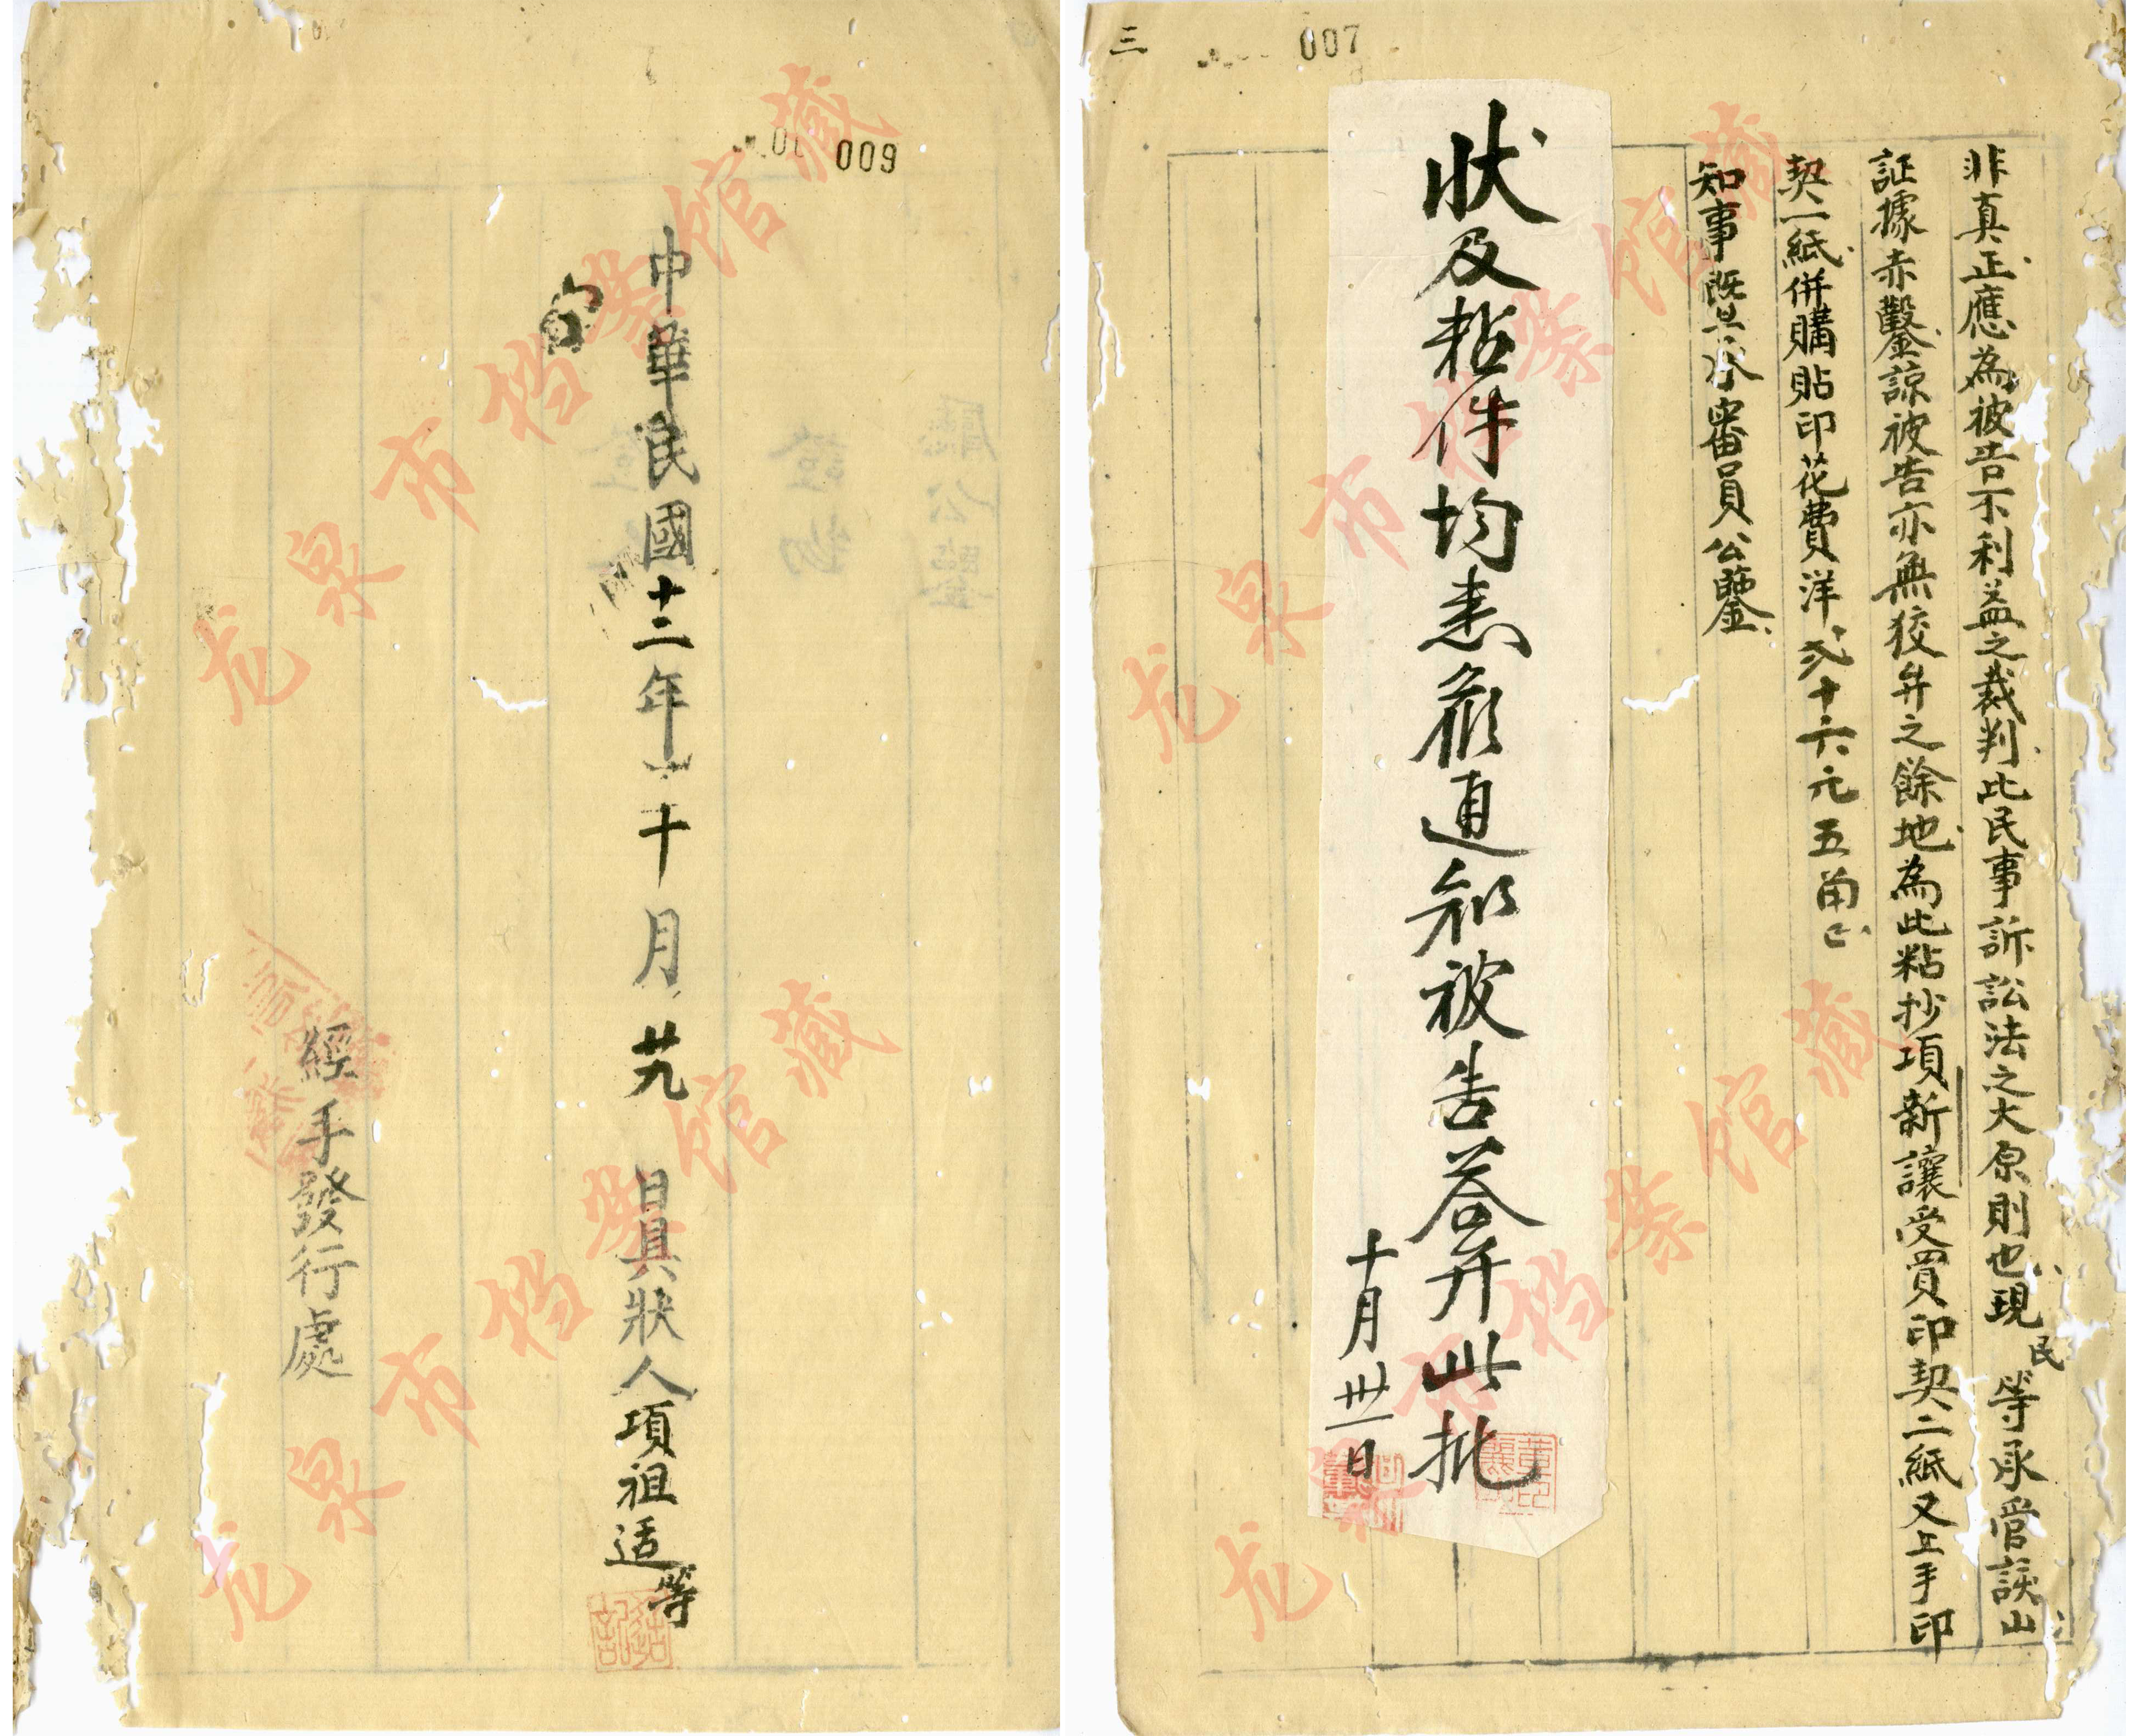 三
007
非真正應為被告不利益之裁判此民事訴訟法之大原則也現民等承管該山
証據赤鑿諒被告亦無狡弁之餘地為此粘抄項新讓受買印契二紙又上手印
契一紙併購貼印花費洋弍十六元五角正
知事既承審員公鑒
狀及粘件均悉候通知被告荅弁此批
十月卅一日
009
中華民國十二年十月廿九日具狀人項祖适等
經手發行處
龙泉市档案馆藏
龙泉市档案馆藏
龙泉市档案馆藏
龙泉市档案馆藏